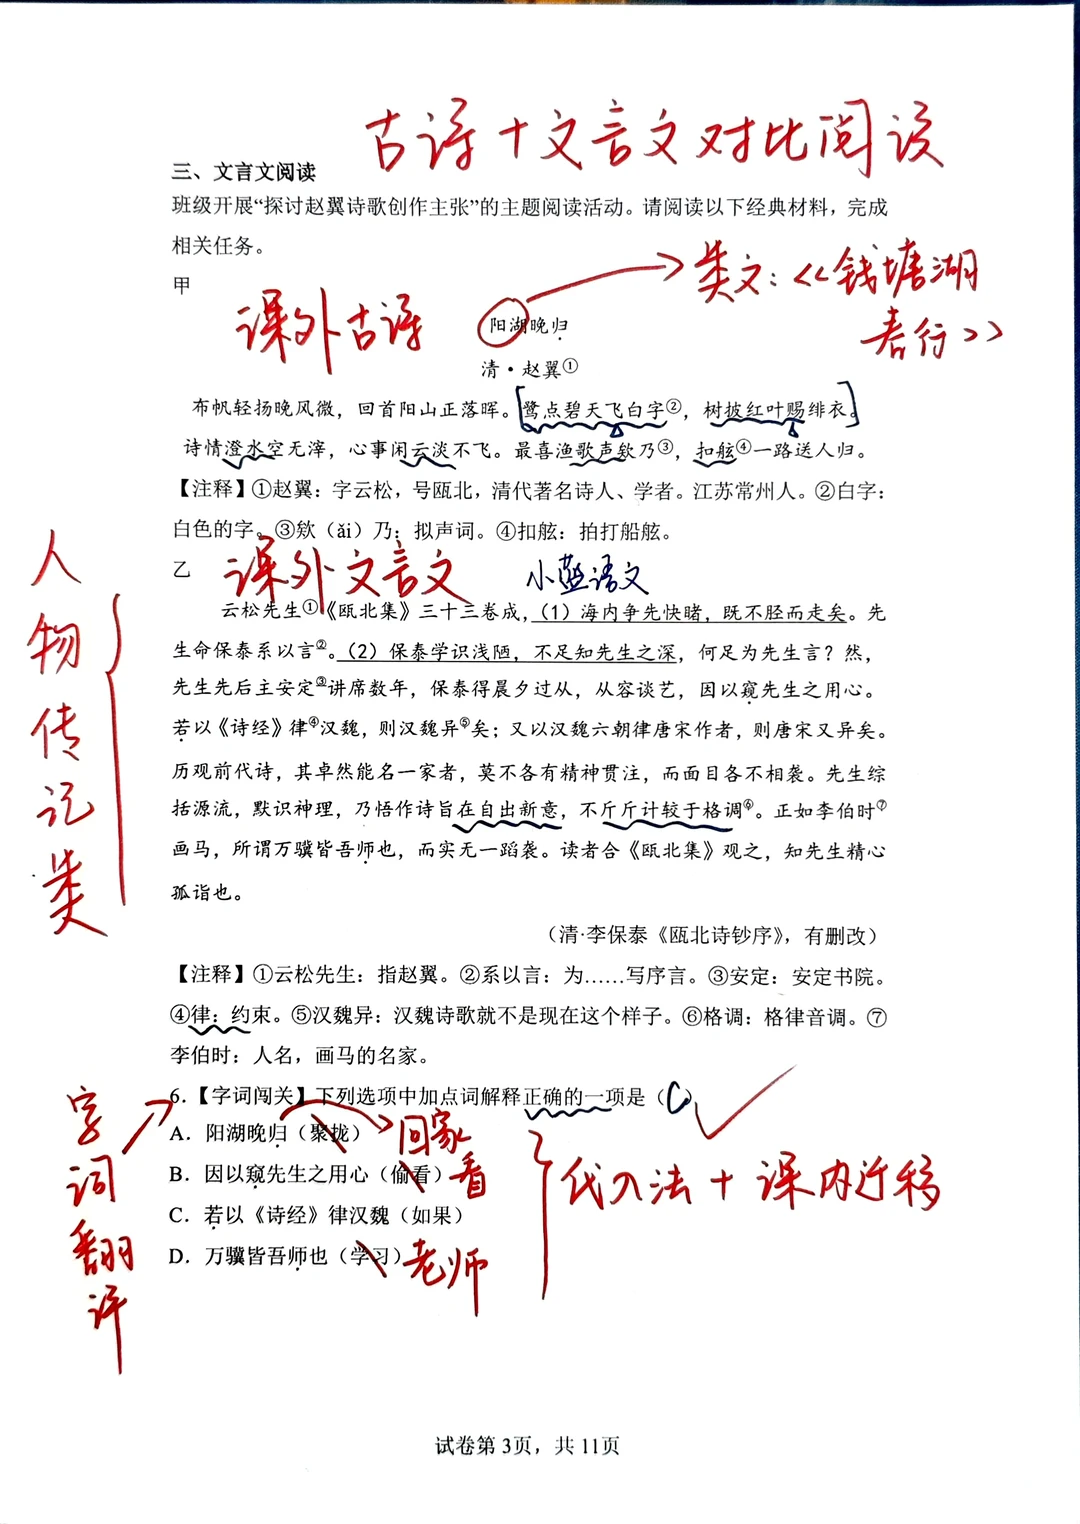 古诗+文言文对比阅读
三、文言文阅读
班级开展“探讨赵翼诗歌创作主张”的主题阅读活动。请阅读以下经典材料，完成
相关任务。
甲
课外古诗
类文：《钱塘湖
春行》
阳湖晚归
清·赵翼①
布帆轻扬晚风微，回首阳山正落晖。鹭点碧天飞白字②，树披红叶赐绯衣。
诗情澄水空无滓，心事闲云淡不飞。最喜渔歌声欸乃③，扣舷④一路送人归。
【注释】①赵翼：字云松，号瓯北，清代著名诗人、学者。江苏常州人。②白字：
白色的字。③欸（ǎi）乃：拟声词。④扣舷：拍打船舷。
乙
课外文言文
小蓝语文
人物传记类
云松先生①《瓯北集》三十三卷成，（1）海内争先快睹，既不胫而走矣。先
生命保泰系以言②。（2）保泰学识浅陋，不足知先生之深，何足为先生言？然，
先生先后主安定③讲席数年，保泰得晨夕过从，从容谈艺，因以窥先生之用心。
若以《诗经》律④汉魏，则汉魏异⑤矣；又以汉魏六朝律唐宋作者，则唐宋又异矣。
历观前代诗，其卓然能名一家者，莫不各有精神贯注，而面目各不相袭。先生综
括源流，默识神理，乃悟作诗旨在自出新意，不斤斤计较于格调⑥。正如李伯时⑦
画马，所谓万骥皆吾师也，而实无一蹈袭。读者合《瓯北集》观之，知先生精心
孤诣也。
（清·李保泰《瓯北诗钞序》，有删改）
【注释】①云松先生：指赵翼。②系以言：为……写序言。③安定：安定书院。
④律：约束。⑤汉魏异：汉魏诗歌就不是现在这个样子。⑥格调：格律音调。⑦
李伯时：人名，画马的名家。
字词翻译
6.【字词闯关】下列选项中加点词解释正确的一项是（C）
A．阳湖晚归（聚拢）回家
B．因以窥先生之用心（偷看）看
C．若以《诗经》律汉魏（如果）
D．万骥皆吾师也（学习）老师
代入法+课内迁移
试卷第3页，共11页